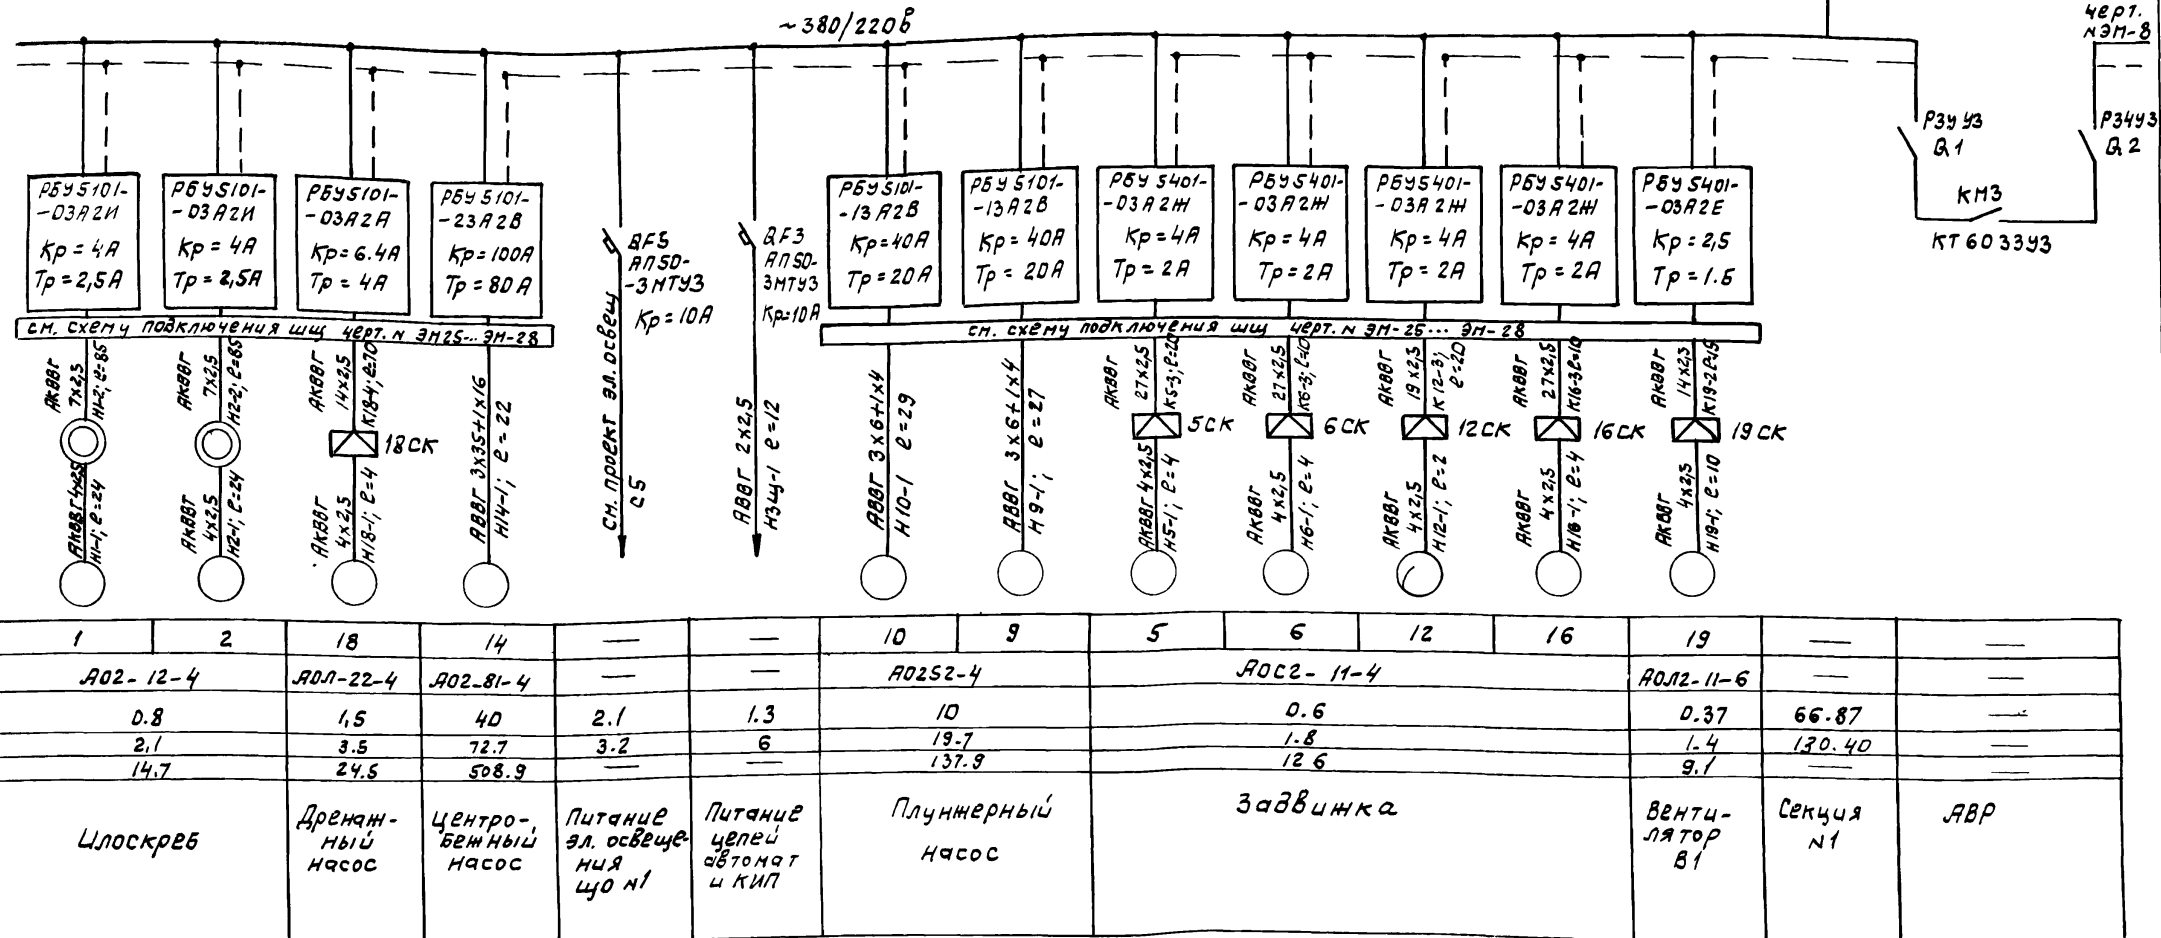 ~380/220в
черт.
№ЭМ-8
РЗУ УЗ
Q1
РЗ4УЗ
Q2
КМ3
КТ6033У3
РБУ5101-
-03А2И
Кр=4А
Тр=2,5А
РБУ5101-
-03А2И
Кр=4А
Тр=2,5А
РБУ5101-
-03А2А
Кр=6.4А
Тр=4А
РБУ5101-
-23А2В
Кр=100А
Тр=80А
QF5
АП50-
-3МТУ3
Кр=10А
QF3
АП50-
3МТУ3
Кр=10А
РБУ5101-
-13А2В
Кр=40А
Тр=20А
РБУ5101-
-13А2В
Кр=40А
Тр=20А
РБУ5401-
-03А2Ж
Кр=4А
Тр=2А
РБУ5401-
-03А2Ж
Кр=4А
Тр=2А
РБУ5401-
-03А2Ж
Кр=4А
Тр=2А
РБУ5401-
-03А2Ж
Кр=4А
Тр=2А
РБУ5401-
-03А2Е
Кр=2,5
Тр=1.6
см. схему подключения шщ черт. № ЭМ25...ЭМ-28
см. схему подключения шщ черт. № ЭМ-25...ЭМ-28
АКВВГ
7x2,5
Н1-2; ℓ=85
АКВВГ
7x2,5
Н2-2; ℓ=85
АКВВГ
14x2,5
К18-4; ℓ=70
АВВГ 3x35+1x16
Н14-1; ℓ=22
см. проект эл. освещ
С5
АВВГ 2x2,5
Н3щ-1 ℓ=12
АВВГ 3x6+1x4
Н10-1 ℓ=29
АВВГ 3x6+1x4
Н9-1; ℓ=27
АКВВГ
27x2,5
К5-3; ℓ=20
АКВВГ
27x2,5
К6-3; ℓ=10
АКВВГ
19x2,5
К12-3;
ℓ=20
АКВВГ
27x2,5
К16-3 ℓ=10
АКВВГ
14x2,5
К19-2 ℓ=15
18СК
5СК
6СК
12СК
16СК
19СК
АКВВГ 4x2,5
Н1-1; ℓ=24
АКВВГ
4x2,5
Н2-1; ℓ=24
АКВВГ
4x2,5
Н18-1; ℓ=4
АКВВГ 4x2,5
Н5-1; ℓ=4
АКВВГ
4x2,5
Н6-1; ℓ=4
АКВВГ
4x2,5
Н12-1; ℓ=2
АКВВГ
4x2,5
Н16-1; ℓ=4
АКВВГ
4x2,5
Н19-1; ℓ=10
1 2 18 14 — — 10 9 5 6 12 16 19 — —
АО2-12-4 АОЛ-22-4 АО2-81-4 — — АО252-4 АОС2-11-4 АОЛ2-11-6 — —
0.8 1,5 40 2.1 1.3 10 0.6 0.37 66.87 —
2,1 3.5 72.7 3.2 6 19.7 1.8 1.4 130.40 —
14.7 24.5 508.9 — — 137.9 12 6 9.1 — —
Илоскреб
Дренаж-
ный
насос
Центро-
бежный
насос
Питание
эл. освеще-
ния
ЩО №1
Питание
цепей
автомат
и КИП
Плунжерный
насос
Задвижка
Венти-
лятор
В1
Секция
№1
АВР